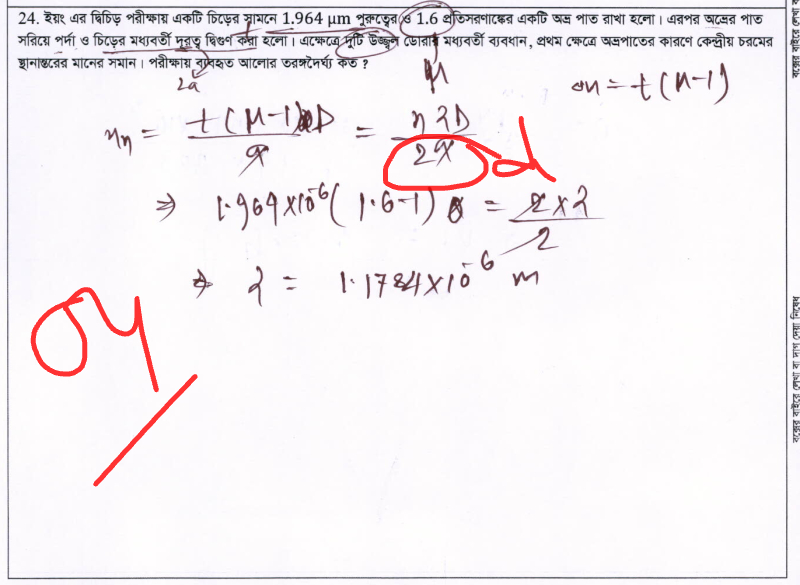 24. ইয়ং এর দ্বিচিড় পরীক্ষায় একটি চিড়ের সামনে 1.964 μm পুরুত্বের ও 1.6 প্রতিসরণাঙ্কের একটি অভ্র পাত রাখা হলো। এরপর অভ্রের পাত
সরিয়ে পর্দা ও চিড়ের মধ্যবর্তী দূরত্ব দ্বিগুণ করা হলো। এক্ষেত্রে দুটি উজ্জ্বল ডোরার মধ্যবর্তী ব্যবধান, প্রথম ক্ষেত্রে অভ্রপাতের কারণে কেন্দ্রীয় চরমের
স্থানান্তরের মানের সমান। পরীক্ষায় ব্যবহৃত আলোর তরঙ্গদৈর্ঘ্য কত ?
2a
μ
= t(μ-1)
x_n = t(μ-1)D / = λD / 2
d
⇒ 1.964×10^-6 (1.6-1) = ×λ / 2
⇒ λ = 1.1784×10^-6 m
বক্সের বাইরে লেখা বা দাগ দেয়া নিষেধ